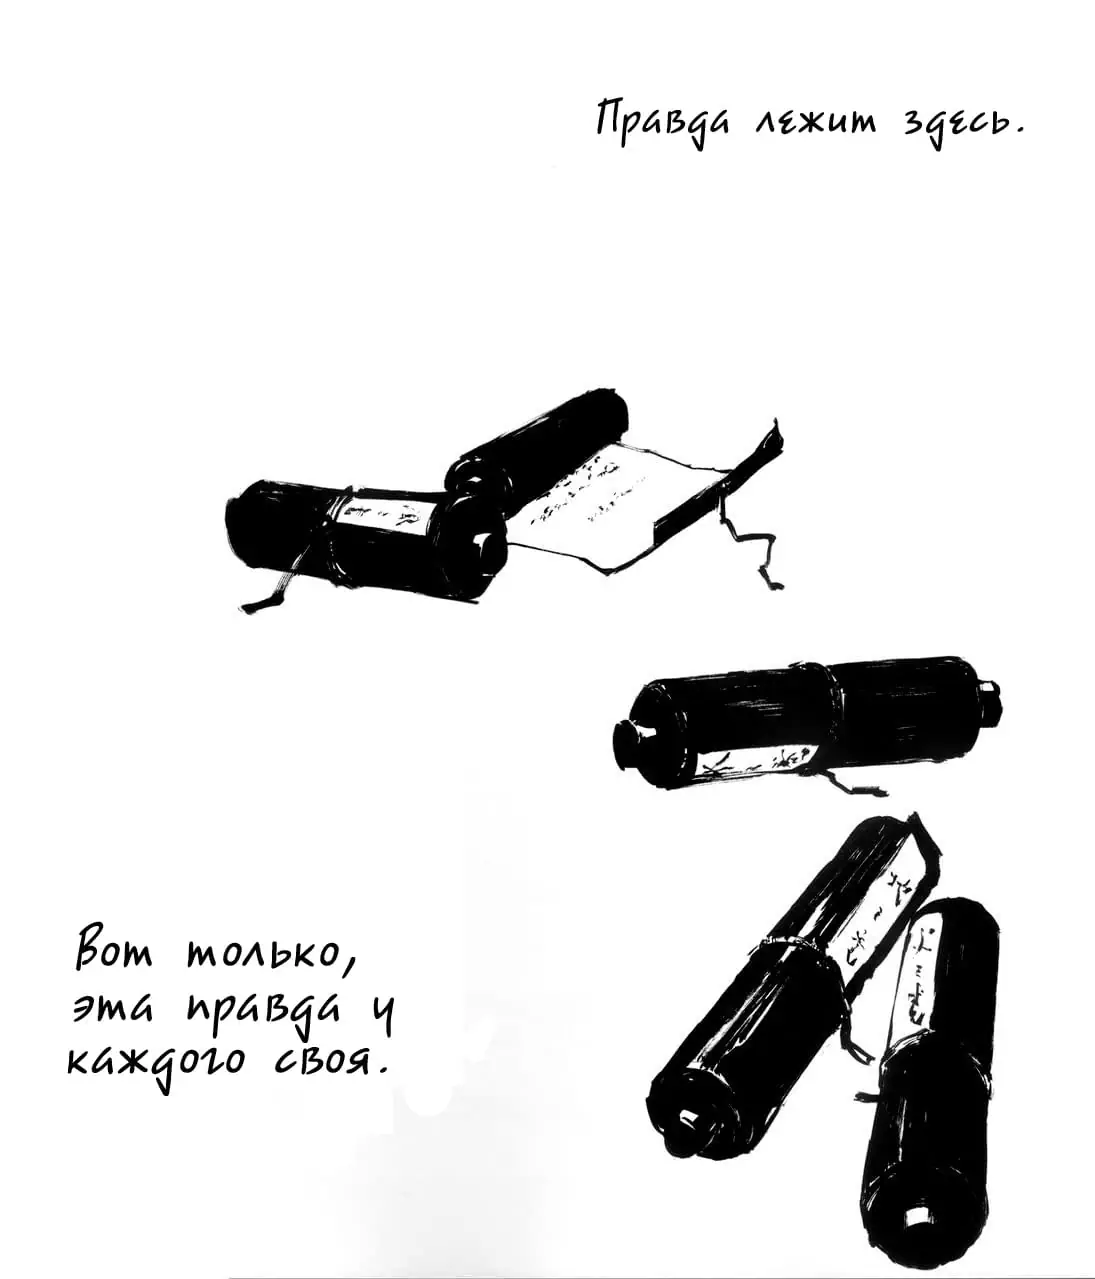 Правда лежит здесь.
Вот только,
эта правда у
каждого своя.